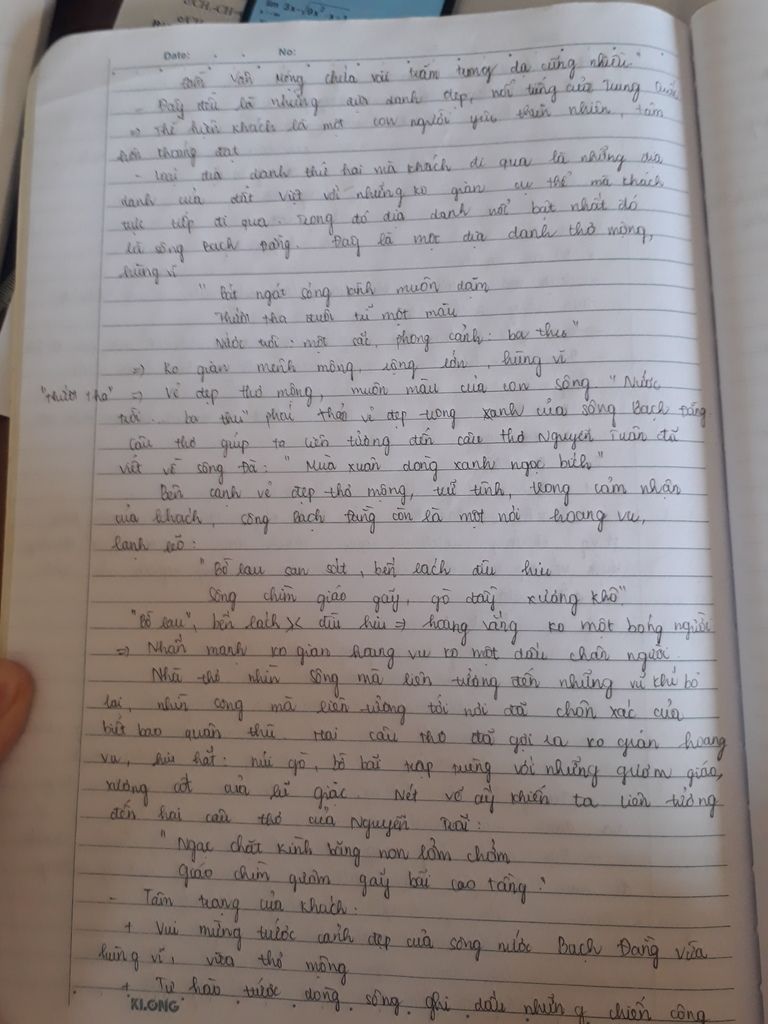 lim 3x-√9x²
Date: No:
Đầm Vân Mộng chứa vài trăm trong dạ cũng nhiều"
- Đây đều là những địa danh đẹp, nổi tiếng của Trung Quốc
=> Thể hiện khách là một con người yêu thiên nhiên, tâm
hồn thoáng đạt
- Loại địa danh thứ hai mà khách đi qua là những địa
danh của đất Việt với những ko gian cụ thể mà khách
trực tiếp đi qua. Trong đó địa danh nổi bật nhất đó
là sông Bạch Đằng. Đây là một địa danh thơ mộng,
hùng vĩ
" Bát ngát sóng kình muôn dặm
Thướt tha đuôi trĩ một màu
Nước trời: một sắc, phong cảnh: ba thu"
=> ko gian mênh mông, rộng lớn, hùng vĩ
"Thướt tha" => Vẻ đẹp thơ mộng, muôn màu của con sông "Nước
trời... ba thu" phác thảo vẻ đẹp trong xanh của sông Bạch Đằng.
Câu thơ giúp ta liên tưởng đến câu thơ Nguyễn Tuân đã
viết về sông Đà: "Mùa xuân dòng xanh ngọc bích"
Bên cạnh vẻ đẹp thơ mộng, trữ tình, trong cảm nhận
của khách, sông Bạch Đằng còn là một nơi hoang vu,
lạnh lẽo:
"Bờ lau san sát, bến lách đìu hiu
Sông chìm giáo gãy, gò đầy xương khô"
"Bờ lau", bến lách x đìu hiu => hoang vắng ko một bóng người
=> Nhấn mạnh ko gian hoang vu ko một dấu chân người.
Nhà thơ nhìn sông mà liên tưởng đến những vũ khí bỏ
lại, nhìn sông mà liên tưởng tới nơi đã chôn xác của
biết bao quân thù. Hai câu thơ đã gợi ra ko gian hoang
vu, hiu hắt: núi gò, bờ bãi trập trùng với những gươm giáo,
xương cốt của lũ giặc. Nét vẽ ấy khiến ta liên tưởng
đến hai câu thơ của Nguyễn Trãi:
" Ngạc chặt kình băm non lởm chởm
Giáo chìm gươm gãy bãi cao tầng."
- Tâm trạng của khách:
+ Vui mừng trước cảnh đẹp của sông nước Bạch Đằng vừa
hùng vĩ, vừa thơ mộng
+ Tự hào trước dòng sông ghi dấu những chiến công
KLONG